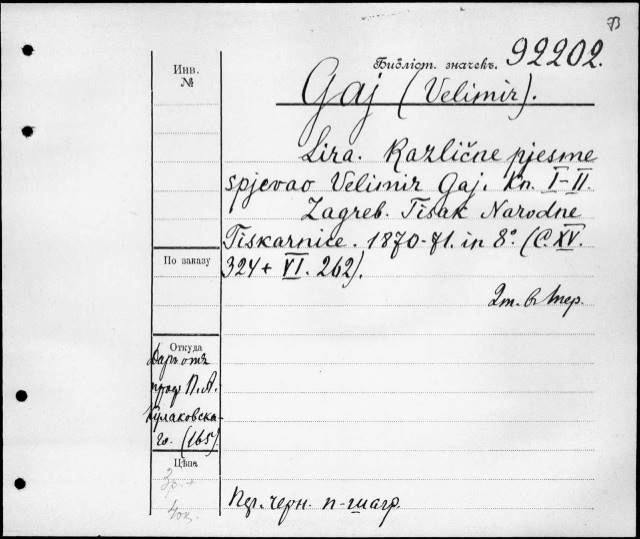 Библіот. значекъ. 92202.
Инв.
№
Gaj (Velimir).
Lira. Različne pjesme
spjevao Velimir Gaj. Kn. I-II.
Zagreb. Tisak Narodne
Tiskarnice. 1870-71. in 8° (C. XV.
324 + VI. 262).
По заказу
2 т. в 1 пер.
Откуда
Даръ отъ
проф. П. А.
Кулаковска-
го. (165)
Цѣна
3 р. +
4 оц.
черн. п-шагр.